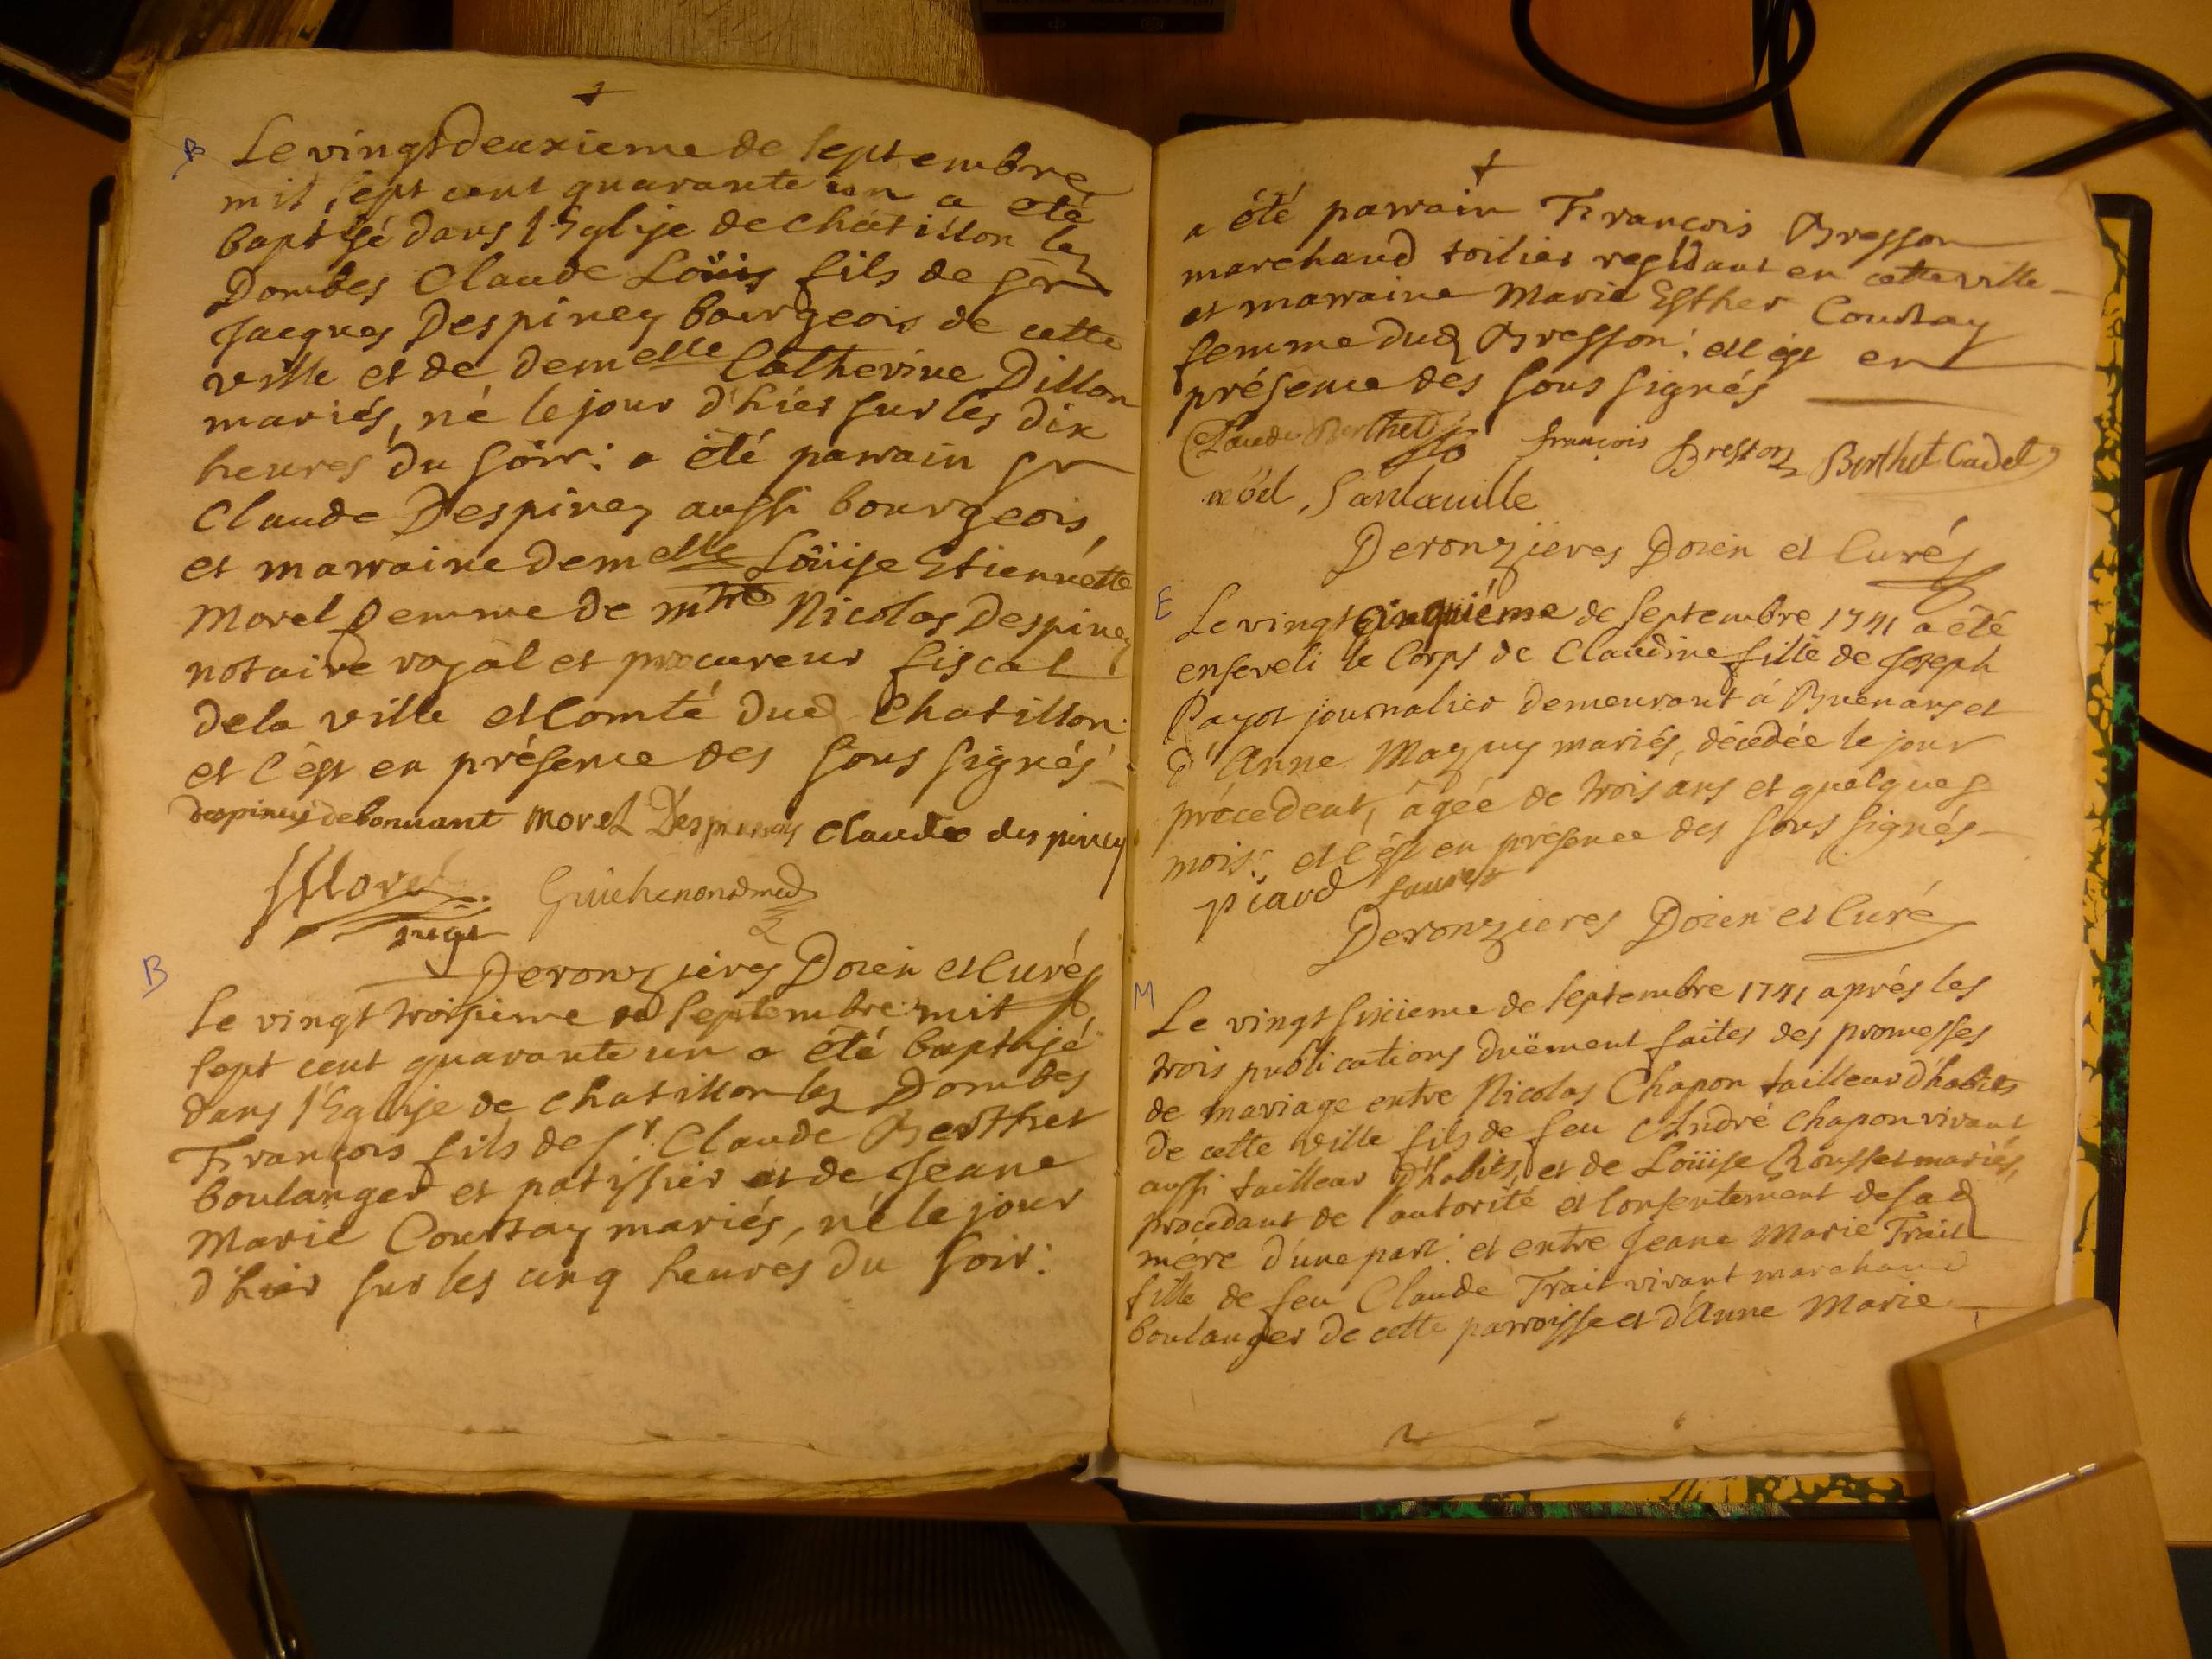 B
Le vingt deuxieme de septembre
mil sept cent quarante un a été
baptisé dans l'Eglise de Châtillon lez
Dombes Claude Loüis fils de sr
Jacques Despiney bourgeois de cette
ville et de demelle Catherine Dillon
mariés, né le jour d'hier sur les dix
heures du soir: a été parrain sr
Claude Despiney aussi bourgeois
et marraine demelle Loüise Etiennette
Morel femme de mtre Nicolas Despiney
notaire royal et procureur fiscal
de la ville et Comté dud Chatillon.
et c'est en présence des sous signés
despiney debonnant Morel Despiney Claude des piney
Morel Guichenon
juge
Deronzieres Doien et Curé
B
Le vingt troisieme de septembre mil
sept cent quarante un a été baptisé
dans l'Eglise de chatillon lez Dombes
François fils de sr. Claude Berthet
boulanger et patissier et de Jeane
Marie Courtay mariés, né le jour
d'hier sur les cinq heures du soir:
a été parrain François Bresson
marchand toilier residant en cette ville
et marraine Marie Esther Courtay
femme dud Bresson: et c'est en
présence des sous signés
Claude Berthet françois Bresson Berthet Cadet
Deronzieres Doien et Curé
E
Le vingt cinquiéme de septembre 1741 a été
enseveli le Corps de Claudine fille de Joseph
Payot journalier demeurant à Buenans et
d'Anne Mazuy mariés, décédée le jour
précedent, âgée de trois ans et quelques
mois: et c'est en présence des sous signés
piard
Deronzieres Doien et Curé
M
Le vingt sixieme de septembre 1741 aprés les
trois publications düement faites des promesses
de mariage entre Nicolas Chapon tailleur d'habits
de cette ville fils de feu André Chapon vivant
aussi tailleur d'habits, et de Loüise Rousset mariés,
procedant de l'autorité et consentement de sad
mére d'une part: et entre Jeane Marie Trait
fille de feu Claude Trait vivant marchand
boulanger de cette parroisse et d'Anne Marie